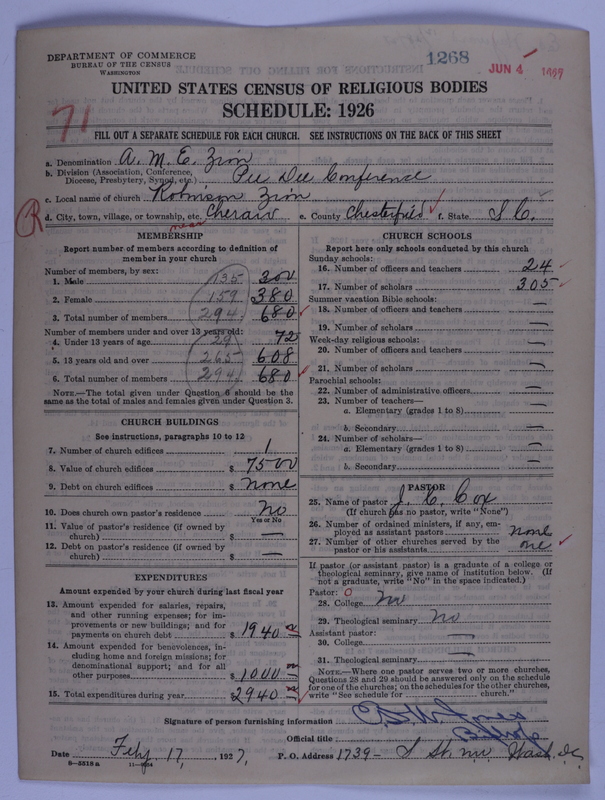 DEPARTMENT OF COMMERCE
BUREAU OF THE CENSUS
WASHINGTON
1268
JUN 4 1927
UNITED STATES CENSUS OF RELIGIOUS BODIES
SCHEDULE: 1926
71
FILL OUT A SEPARATE SCHEDULE FOR EACH CHURCH. SEE INSTRUCTIONS ON THE BACK OF THIS SHEET
a. Denomination A. M. E. Zion
b. Division (Association, Conference, Diocese, Presbytery, Synod, etc.) Pee Dee Conference
c. Local name of church Robinson Zion
R
d. City, town, village, or township, etc. near Cheraw e. County Chesterfield f. State S C.
MEMBERSHIP
Report number of members according to definition of
member in your church
Number of members, by sex:
1. Male 135 300
2. Female 159 380
3. Total number of members 294 680
Number of members under and over 13 years old:
4. Under 13 years of age 29 72
5. 13 years old and over 265 608
6. Total number of members 294 680
NOTE.—The total given under Question 6 should be the
same as the total of males and females given under Question 3.
CHURCH BUILDINGS
See instructions, paragraphs 10 to 12
7. Number of church edifices 1
8. Value of church edifices $ 7500
9. Debt on church edifices $ none
10. Does church own pastor's residence No
Yes or No
11. Value of pastor's residence (if owned by
church) $ —
12. Debt on pastor's residence (if owned by
church) $ —
EXPENDITURES
Amount expended by your church during last fiscal year
13. Amount expended for salaries, repairs,
and other running expenses; for im-
provements or new buildings; and for
payments on church debt $ 1940
14. Amount expended for benevolences, in-
cluding home and foreign missions; for
denominational support; and for all
other purposes $ 1000
15. Total expenditures during year $ 2940
CHURCH SCHOOLS
Report here only schools conducted by this church
Sunday schools:
16. Number of officers and teachers 24
17. Number of scholars 305
Summer vacation Bible schools:
18. Number of officers and teachers —
19. Number of scholars —
Week-day religious schools:
20. Number of officers and teachers —
21. Number of scholars —
Parochial schools:
22. Number of administrative officers —
23. Number of teachers—
a. Elementary (grades 1 to 8) —
b. Secondary —
24. Number of scholars—
a. Elementary (grades 1 to 8) —
b. Secondary —
PASTOR
25. Name of pastor J. C. Cox
(If church has no pastor, write "None")
26. Number of ordained ministers, if any, em-
ployed as assistant pastors none
27. Number of other churches served by the
pastor or his assistants one
If pastor (or assistant pastor) is a graduate of a college or
theological seminary, give name of institution below. (If
not a graduate, write "No" in the space indicated.)
Pastor: O
28. College No
29. Theological seminary No
Assistant pastor:
30. College —
31. Theological seminary —
NOTE.—Where one pastor serves two or more churches,
Questions 28 and 29 should be answered only on the schedule
for one of the churches; on the schedules for the other churches,
write "See schedule for church."
Signature of person furnishing information Jones
Official title Bishop
Date Feby 17, 1927, P. O. Address 1739- S St. nw Wash. D.C.
8—5518a